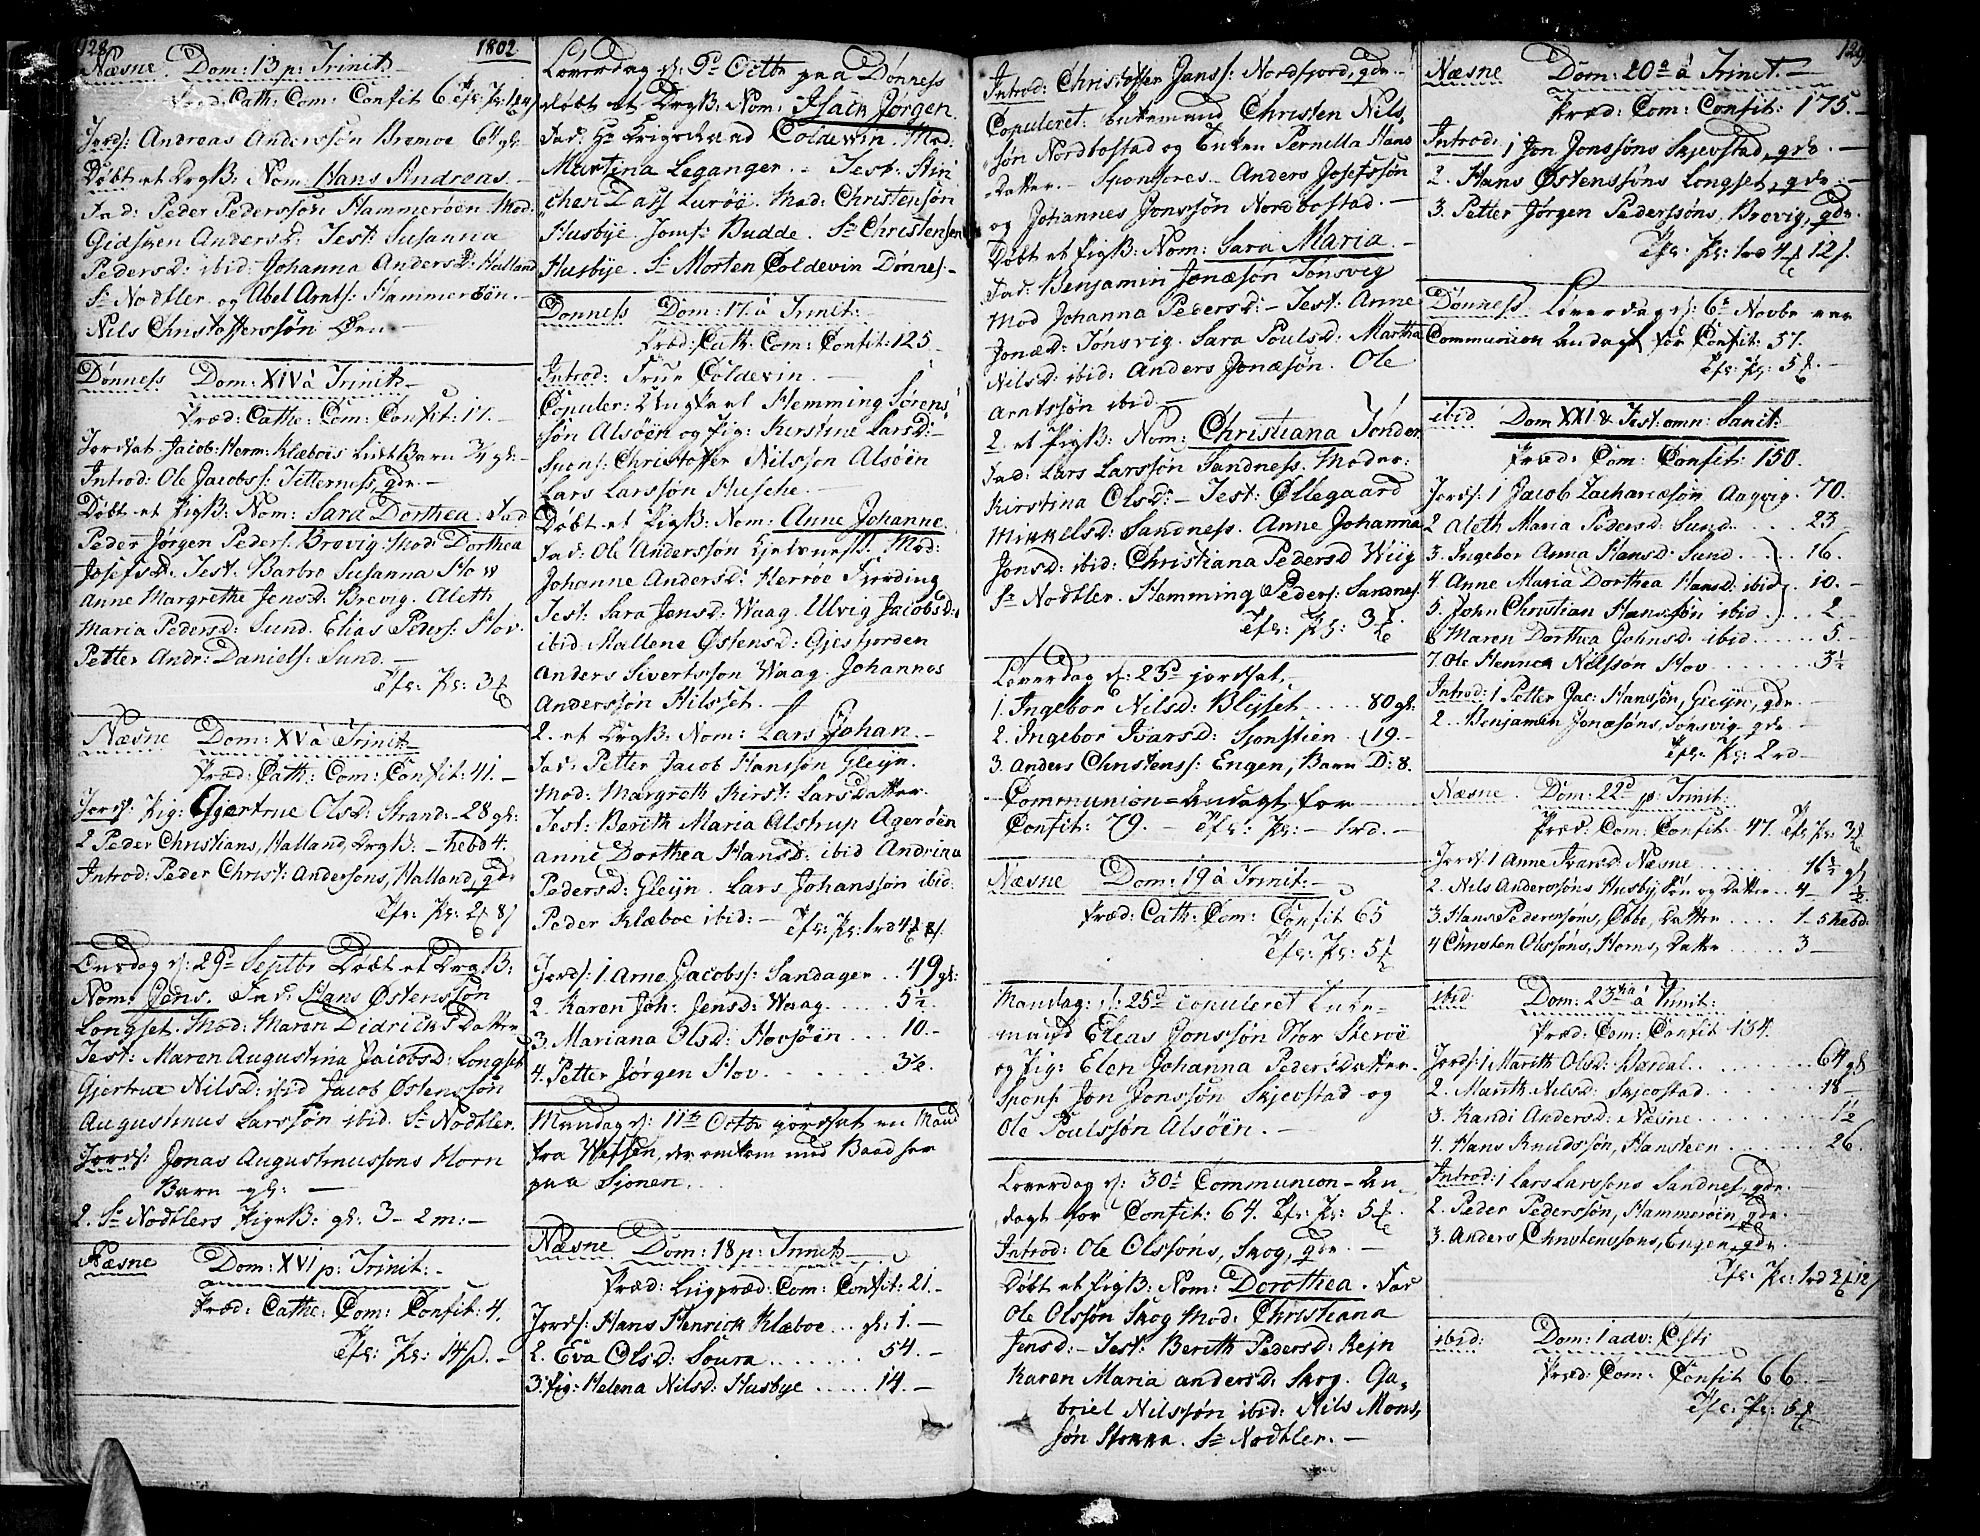 128. 1802.
Næsne Dom: 13 p: Trinit:
Præd: Cath: Com: Confit 6
Jords: Andreas Anderssøn Bremoe 64
Døbt et DrgB: Nom: Hans Andreas.
Fad: Peder Pederssøn Hammerøen Mod:
Gidsken Andersd: Test: Susanna
Pedersd: ibid: Johanna Andersd: Halland
Sr Nodtler og Abel Arnts: Hammerøen.
Nils Christofferssøn Øen
Dønness Dom: XIV à Trinit:
Præd: Cathe: Com: Confit: 17.
Jordsat Jacob Herm: Klæboes Lidt Barn
Introd: Ole Jacobss: Titterness, gdr.
Døbt et PigB: Nom: Sara Dorthea. Fad
Peder Jørgen Peders: Brevig Mod: Dorthea
Josefsd: Test. Barbro Susanna Hov
Anne Margrethe Jensd: Brevig. Aleth
Maria Pedersd: Sund. Elias Peders: Hov.
Petter Andr: Daniels: Sund.
Efs: Ks: 3
Næsne Dom: XV à Trinit:
Præd: Cath: Com: Confit: 41.
Jords: Pig: Gjertrue Olsd: Strand. 28
2 Peder Christians, Halland, DrgB: hebd 4.
Introd: Peder Christ: Andersons, Halland, gdr
Efs: Ks: 2 8
Onsdag d: 29de Septbr Døbt et Drg B:
Nom: Jens. Fad: Hans Østenssøn
Longset. Mod: Maren Didricks Datter
Test: Maren Augustina Jacobsd: Longset
Gjertrue Nilsd: ibid Jacob Østenssøn
Augustinus Larssøn ibid. Sr Nodtler.
Jords: Jonas Augustinussons Horn
Barn
2. Sr Nodtlers PigeB: gl: 3 - 2 m:
Næsne Dom: XVI p: Trinit:
Præd: Cathe: Com: Confit: 4.
Efs: Ks: 14
Løverdag d: 9de Octbr paa Dønness
døbt et DrgB: Nom: Isach Jørgen.
Fad: Hr Krigsraad Coldevin. Mod:
Martina Leganger. Test:
Dass Lurøe. Mad: Christensøn
Husbye. Jomf: Budde. Sr Christensen
Husbye. Sr Morten Coldevin Dønnes:
Donness Dom: 17. à Trinit:
Præd: Cath: Com: Confit: 125
Introd: Frue Coldevin.
Copuler: Ungkarl Hemming Sørens
søn Alsøen og Pig: Kirstine Larsd:
Spons: Christoffer Nilsson Alsøin
Lars Larssøn Husche.
Døbt et PigB: Nom: Anne Johanne
Fad: Ole Anderssøn Mod:
Johanne Andersd: Herrøe
Test: Sara Jonsd: Waag. Ulvig Jacobsd:
ibid. Mallene Østensd: Gjesfjorden
Anders Sivertsson Waag Johannes
Anderssøn Hilsset.
2. et DrgB: Nom: Lars Johan.
Fad: Petter Jacob Hanssøn Gleijn.
Mod: Margreth Kirst: Lars Datter.
Test: Berith Maria Alstrup Agerøen
anne Dorthea Hansd: ibid Andrina
Pedersd: Gleijn. Lars Johanssøn ibid:
Peder Klæboe ibid: Efs: Ks: 1 rd 4
Jords: 1 Arne Jacobss: Sandager 49
2. Karen Joh: Jensd: Waag 5½
3 Mariana Olsd: Hovsøen 10.
4. Petter Jørgen Hov 3½
Mandag d: 11te Octbr jordsat en Mand
fra Wefsen, der omkom med Baad her
paa Sjonen.
Næsne Dom: 18 p: Trinit:
Præd: Liigpræd: Com: Confit: 21.
Jords: Hans Henrick Klæboe gl: 1.
2. Eva Olsd: Soura 54.
3. Pig: Helena Nilsd: Husbye 14.
129.
Introd: Christoffer Janss: Nordfjord, gdr.
Copuleret: Enkemand Christen Nils
søn Nordbostad og Enken Pernilla Hans
Datter. Sponsores Anders Josefssøn
og Johannes Jonssøn Nordbostad.
Døbt et PigB: Nom: Sara Maria.
Fad: Benjamin Jonæsøn Tonsvig
Mod Johanna Pedersd: Test: Anne
Jonæd: Tonsvig. Sara Poulsd: Martha
Nilsd: ibid: Anders Jonæsøn. Ole
Arntssøn ibid.
2. et PigB: Nom: Christiana Tonder
Fad: Lars Larssøn Sandness. Moder:
Kirstina Olsd: Test: Øllegaard
Mikkelsd: Sandness. Anne Johanna
Jonsd: ibid: Christiana Pedersd Wiig
Sr Nodtler. Hemming Peders: Sandnes.
Efs: Ks: 3
Løverdag d: 23d jordsat.
1. Ingebor Nilsd: Blysset 80
2. Ingebor Ivarsd: Sjonstien 19.
3. Anders Christenss: Engen, Barn D: 8.
Communion Andagt for
Confit: 79. Efs: Ks: 1 rd.
Næsne Dom: 19 à Trinit:
Præd: Cath: Com: Confit 65
Efs: Ks: 5
Mandag: d: 25d copuleret Enke
mand Eleas Jonssøn Stor Sterøe
og Pig: Elen Johanna Peders Datter.
Spons Jon Jonssøn Skjevstad og
Ole Poulssøn Alsøen.
Løverdag d: 30te Communion An
dagt for Confit: 64. Efs: Ks: 5
Introd: Ole Olssøns, Skog, gdr.
Døbt et PigB: Nom: Dorothea. Fad
Ole Olssøn Skog Mod: Christiana
Jensd: Test: Berith Pedersd: Rejn
Karen Maria andersd: Skog. Ga
briel Nilssøn ibid: Nils Mons
søn Stokka. Sr Nodtler.
Næsne Dom: 20 à Trinit.
Præd: Com: Confit: 175.
Introd: 1 Jon Jonssøns Skjevstad, gdr.
2. Hans Østenssøns Longset, gdr.
3. Petter Jørgen Pederssøns, Brevig, gdr.
Efs: Ks: 1 rd 4 12
Dønness Løverdag d: 6te Novbr var
Communion Andagt for Confit: 57.
Efs: Ks: 5
ibid Dom XXI & Fest: omn: Sanct:
Præd: Com: Confit: 150.
Jords: 1 Jacob Zachariæsøn Aagvig. 70.
2 Aleth Maria Pedersd: Sund 23
3. Ingebor Anna Hansd: Sund 16.
4. Anne Maria Dorthea Hansd: ibid 10.
5. John Christian Hanssøn ibid 2
6 Maren Dorthea Johnsd: ibid 5.
7. Ole Henrick Nilssøn Hov 3½
Introd: 1 Petter Jac: Hanssøn, Gleijn, gdr.
2. Benjamin Jonæsøns, Tonsvig gdr
Efs: Ks: 2 rd
Næsne Dom: 22d p: Trinit:
Præd: Com: Confit: 47. Efs: Ks: 3
Jords: 1 Anne Ivarsd: Næsne 46½
2. Nils Anderssøns Husby, Søn og Datter 4 ½
3. Hans Pederssøns, Øbbe, Datter 1 5 hebd:
4 Christen Olssøns, Horns, Datter 3
ibid Dom: 23tia à Trinit:
Præd: Com: Confit 134.
Jords: 1 Marith Olsd: 64
2. Marith Nilsd: Skjevstad 18
3. Randi Andersd: Næsne 1½
4. Hans Knudssøn, Hansteen 26.
Introd: 1 Lars Larssons Sandnes, gdr.
2. Peder Pederssøn, Hammerøen, gdr.
3. Anders Christenssøns, Engen, gdr.
Efs: Ks: 1 rd 3 12
ibid: Dom: 1 adv: Csti
Præd: Com: Confit 66
Efs: Ks: 5